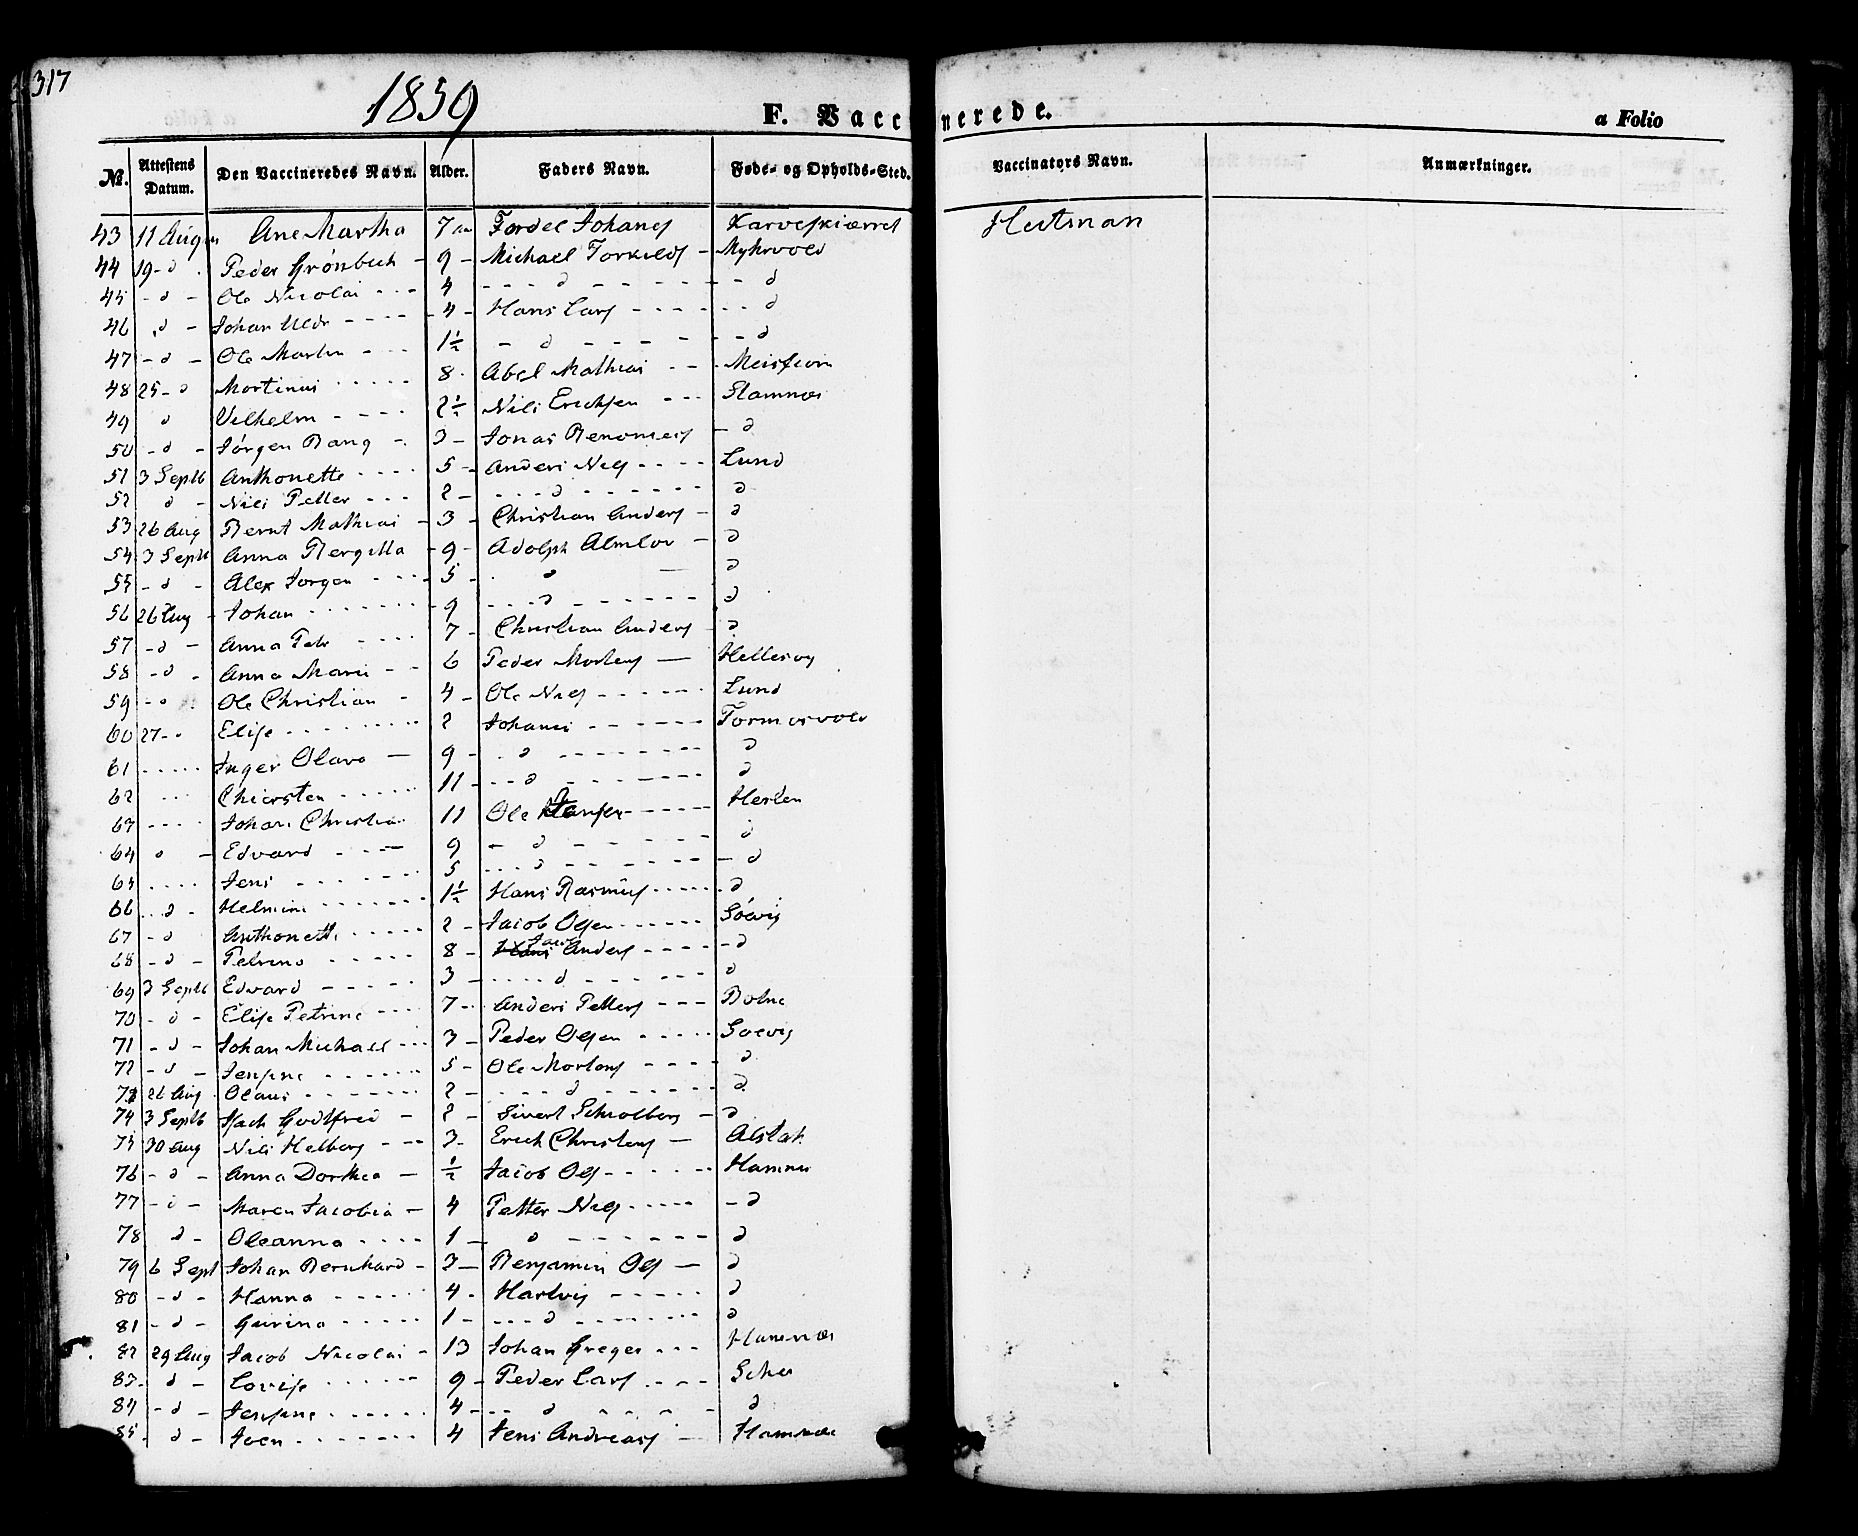 317
1859
F. Vaccinerede.
a Folio
№. Attestens Datum. Den Vaccineredes Navn. Alder. Faders Navn. Føde- og Opholds-Sted. Vaccinators Navn. Anmærkninger.
43 11 August Ane Martha 7 Tordel Johanes Karveskiærret Heitman
44 19 - d Peder Grönbech - 9 - Michael Torkilds - Myhrvold
45 - d - Ole Nicolai - - - 4 - - - - d - - - - - - - d
46 d - Johan Uldr - - - - 4 - Hans Lars - - - - - - - d
47 - d - Ole Martin - - - 1½ - d - - - - - - d
48 25 - d Mortinus - - - - - 8 - Abel Mathias - - -
49 d Vilhelm - - - - 2½ Nils Erichsen - - - Stamnæs
50 - d - Jørgen Bang - - 3 - Jonas - d
51 3 Septb Anthonette - - - - 5 - Anders Niels - - - - Lund
52 d - Nils Petter - - - 2 - - - - d - - - - - - - d
53 26 Aug Bernt Mathias - 3 - Christian Anders - d
54 3 Septb Anna Bergitta - 9 - Adolph Almlov - d
55 - d - Alex Jorgen - - - - 5 - d — d
56 26 Aug - Johan - - - - - - - 9 - - - d - - - - - - d
57 - d - Anna Petr - - - - 7 - Christian Anders - d
58 - d - Anna Marie - - 6 Peder Mortens — Hellesvg
59 - d Ole Christian - 4 - Ole Niels - - - - - - Lund
60 27 - d Elise - - - - - - - 2 Johanes - - - - - - Tormosvold
61 - - - - - Inger Olava — 9 - - d - - - - - - - - d
62 - - - Chiersten - - - - - 11 - - - d - - - - - - d
63 - - - - Johan Christian 11 Ole Hansen - - - - - Hesten
64 d - Edvard - - - — 9 - d - - - - - d
65 - - - - Jens - - - - - - 5 - - - d - - - - - - - d
66 - - d - Helmine - - - - - - 1½ Hans Rasmus - - - - - d
67 - d Anthonette - - - - - 2 - Jacob Olsen - - - - - - Söevig
68 - d - Petrine - - - - - 8 - Hans Jacob Anders - - - - - d
69 3 Septb Edvard - - - - - 3 - - - - d - - - - - - d
70 - d - Elise Petrine - - - - 7 - Anders Petters - - - Botne
71 - d - Johan Michael - - - 3 - Peder Olsen - - - - - Soevig
72 - d - Jensine - - - - - - 5 - Ole Mortens - - - - d
73 26 Aug Olaus - - - - - - - 2 - - - - - d - - - - - - - d
74 3 Septb Isach Godtfred - 2 - Sivert Schiolberg - d
75 30 Aug Nils Helberg - - - 3 - Erich Christens — Alstah
76 - d - Anna Dorthea — ½ Jacob Ols - - - - - - Hamnes
77 - d - Maren Jacobia - 4 Petter Niels - - - - - - d
78 d - Oleanna - - - - 1 — d - - - - - - - d
79 6 Sept Johan Bernhard - 3 — Benjamin Ols — d
80 - d - Hanna - - - - - - 4 - Hartvig - - - - - d
81 - d - Gurina - - - - - 1 - - - - d - - - - - - - d
82 29 Aug Jacob Nicolai - 13 Johan Greger - - - Hamnæs
83 - d - Lovise - - - - - - 9 - Peder Lars - - - -
84 - d - Jensine - - - - - - 4 - - - d - - - - - d
85 - d - Joen - - - - - - - 4 Jens Andreas — Hamnæs